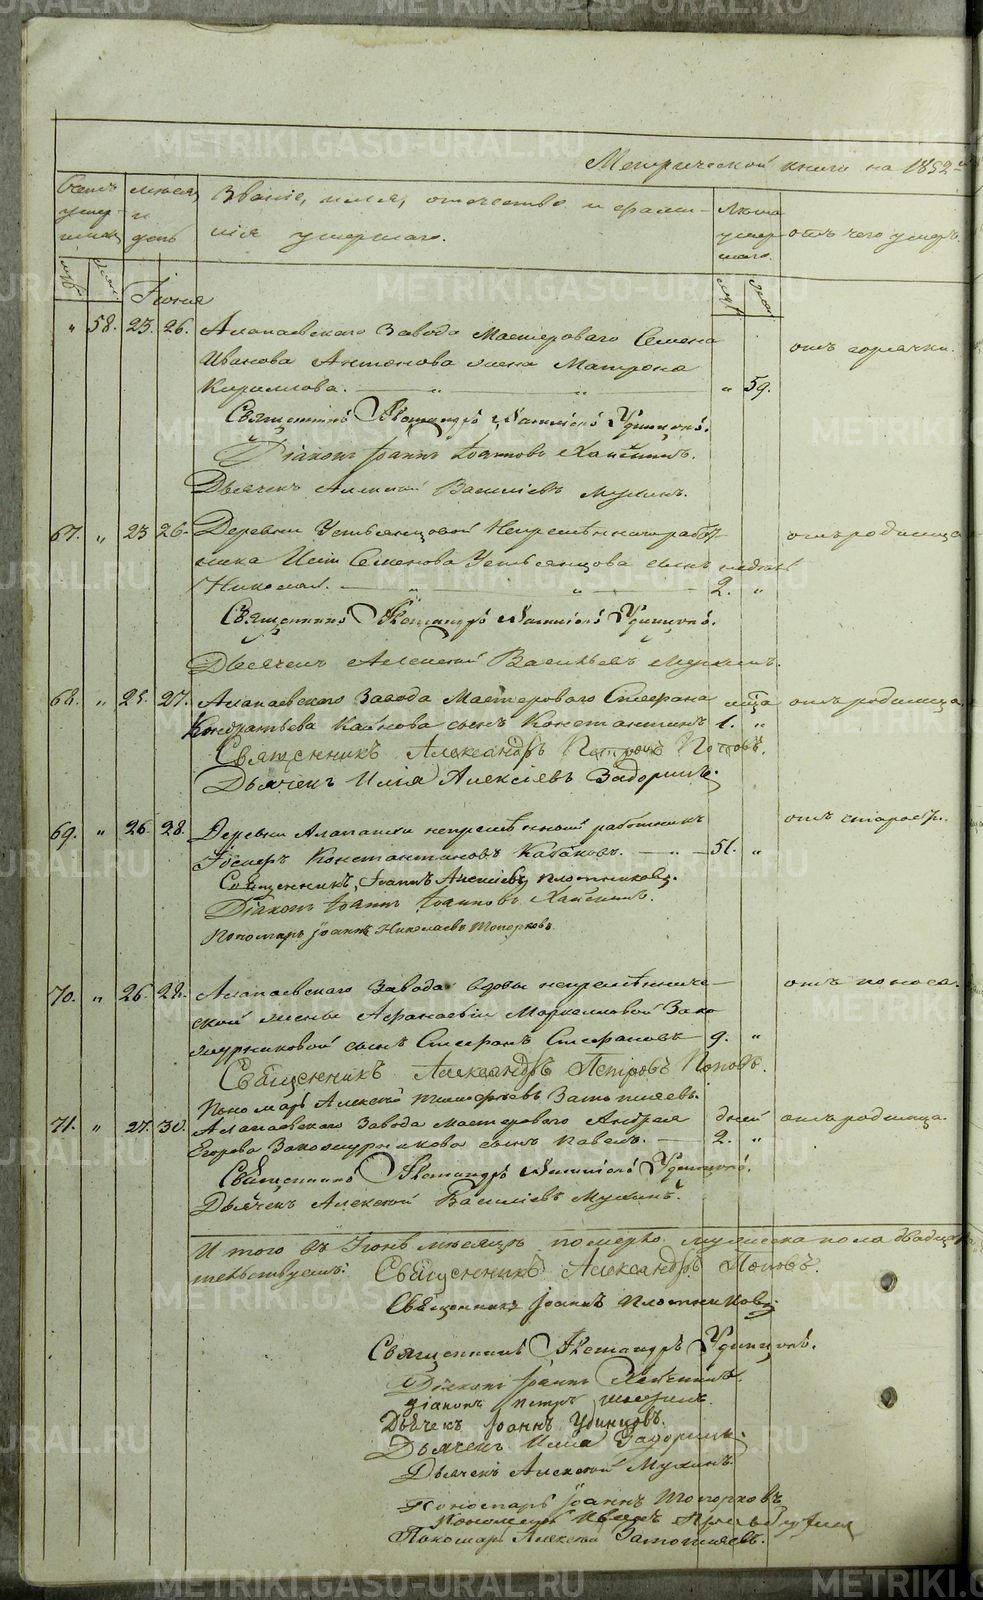 Метрической книги на 1852 й
Счетъ умер- шихъ
месяц и день
Званіе, имя, отечество и фами-
лія умершаго.
Лета умер шаго.
отъ чего умеръ.
муж. жен. муж. жен.
Іюня
" 58. 23. 26. Алапаевскаго Завода Мастероваго Семена
отъ горячки.
Иванова Антонова жена Матрона
Кирилова. " " " 59.
Священникъ Александръ Удинцовъ.
Діаконъ Іоаннъ Іоанновъ Хайсинъ.
Дьячекъ Алексей Василіевъ Мухинъ.
67. " 23 26. Деревни Устьянцовой Непремѣннаго работ-
отъ родимца
ника Семенова Устьянцова сынъ недѣль
Николай. " 2. "
Священникъ Александръ Удинцовъ.
Дьячекъ Алексей Васильевъ Мухинъ.
68. " 25. 27. Алапаевскаго Завода Мастероваго Стефана
отъ родимца
Кондратьева Кайнова сынъ Константинъ 1. "
Священникъ Александръ Петровъ Поповъ.
Дьячекъ Илія Алексіевъ Задоринъ.
69. " 26. 28. Деревни Алапаихи непремѣнный работникъ
отъ старости.
Константиновъ Кабаковъ. " 51. "
Священникъ Іоаннъ Алексіевъ Плотниковъ.
Діаконъ Іоаннъ Іоанновъ Хайсинъ.
Пономарь Іоаннъ Николаевъ Топорковъ.
70. " 26. 28. Алапаевскаго Завода вдовы непремѣнниче-
отъ поноса.
ской жены Афанасьи Маркеловой Зако
журниковой сынъ Стефанъ Стефановъ 9. "
Священникъ Александръ Петровъ Поповъ.
Пономарь Алексей Тимофеевъ Затопляевъ.
71. " 27. 30. Алапаевскаго Завода мастероваго Андрея дней
отъ родимца.
Егорова Закожурникова сынъ Павелъ. 2. "
Священникъ Александръ Удинцовъ.
Дьячекъ Алексей Василіевъ Мухинъ.
И того въ Іюнѣ месяцѣ померло мужеска пола двадца
тельствуемъ: Священникъ Александръ Поповъ.
Священникъ Іоаннъ Плотниковъ
Священникъ Александръ Удинцовъ.
Діаконъ Іоаннъ Хайсинъ.
Діаконъ Петръ
Дьячекъ Іоаннъ Удинцовъ.
Дьячекъ Илія Задоринъ.
Дьячекъ Алексей Мухинъ.
Пономарь Іоаннъ Топорковъ
Пономарь Иванъ
Пономарь Алексей Затопляевъ.
METRIKI.GASO-URAL.RU